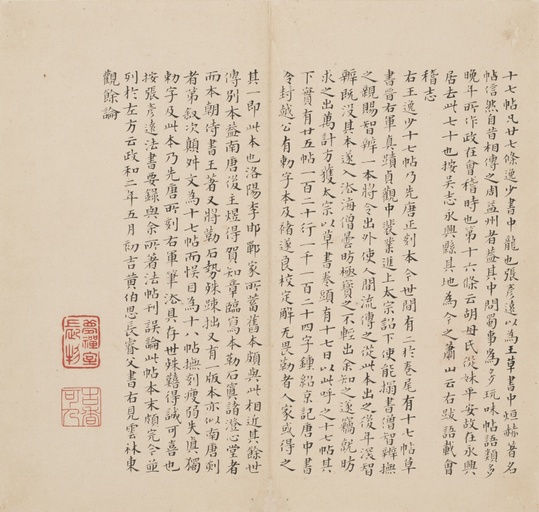 十七帖凡廿七條逸少書中龍也張彦遠以為王草書中烜赫著名
帖信然自昔相傳之周益州者蓋其中問蜀事為多玩味帖語類多
晚年所作政在會稽時也第十六條云胡母氏從妹平安故在永興
居去此七十也按吳志永興縣其地為今之蕭山云右跋語載會
稽志
右王逸少十七帖乃先唐正刻本今世間有二於卷尾有十七帖草
書晉右軍真蹟貞觀中裴業進上太宗詔下使能搨書僧智辯撫
之親賜智辯一本將令出外使人間流傳之從此本出之後年深智
辯既没其本遂入浴海僧曇昉極寶之不輕出余知之遂竊就昉
求之出萬計方獲太宗以草書卷頭有十七日以此呼之十七帖其
下實有廿五帖一百二十行一千一百二十四字鍾紹京記唐中書
令封越公有勅字本及褚遂良校定解无畏勒者人家或得之
其一即此本也洛陽李邯鄲家所蓄舊本頗與此相近其餘世
傳別本蓋南唐後主煜得賀知章臨寫本勒石寘諸澄心堂者
而本朝侍書王著又將勒石勢殊疎拙又有一版本亦似南唐刻
者第叙次顛舛文為十七帖而誤目為十八帖撫刻瘦弱失真獨
勅字及此本乃先唐所刻右軍筆法具存世殊囏得誠可喜也
按張彦遠法書要錄與余所著法帖刊誤論此帖本末頗完今並
列於左方云政和二年五月初吉黄伯思長睿父書右見雲林東
觀餘論